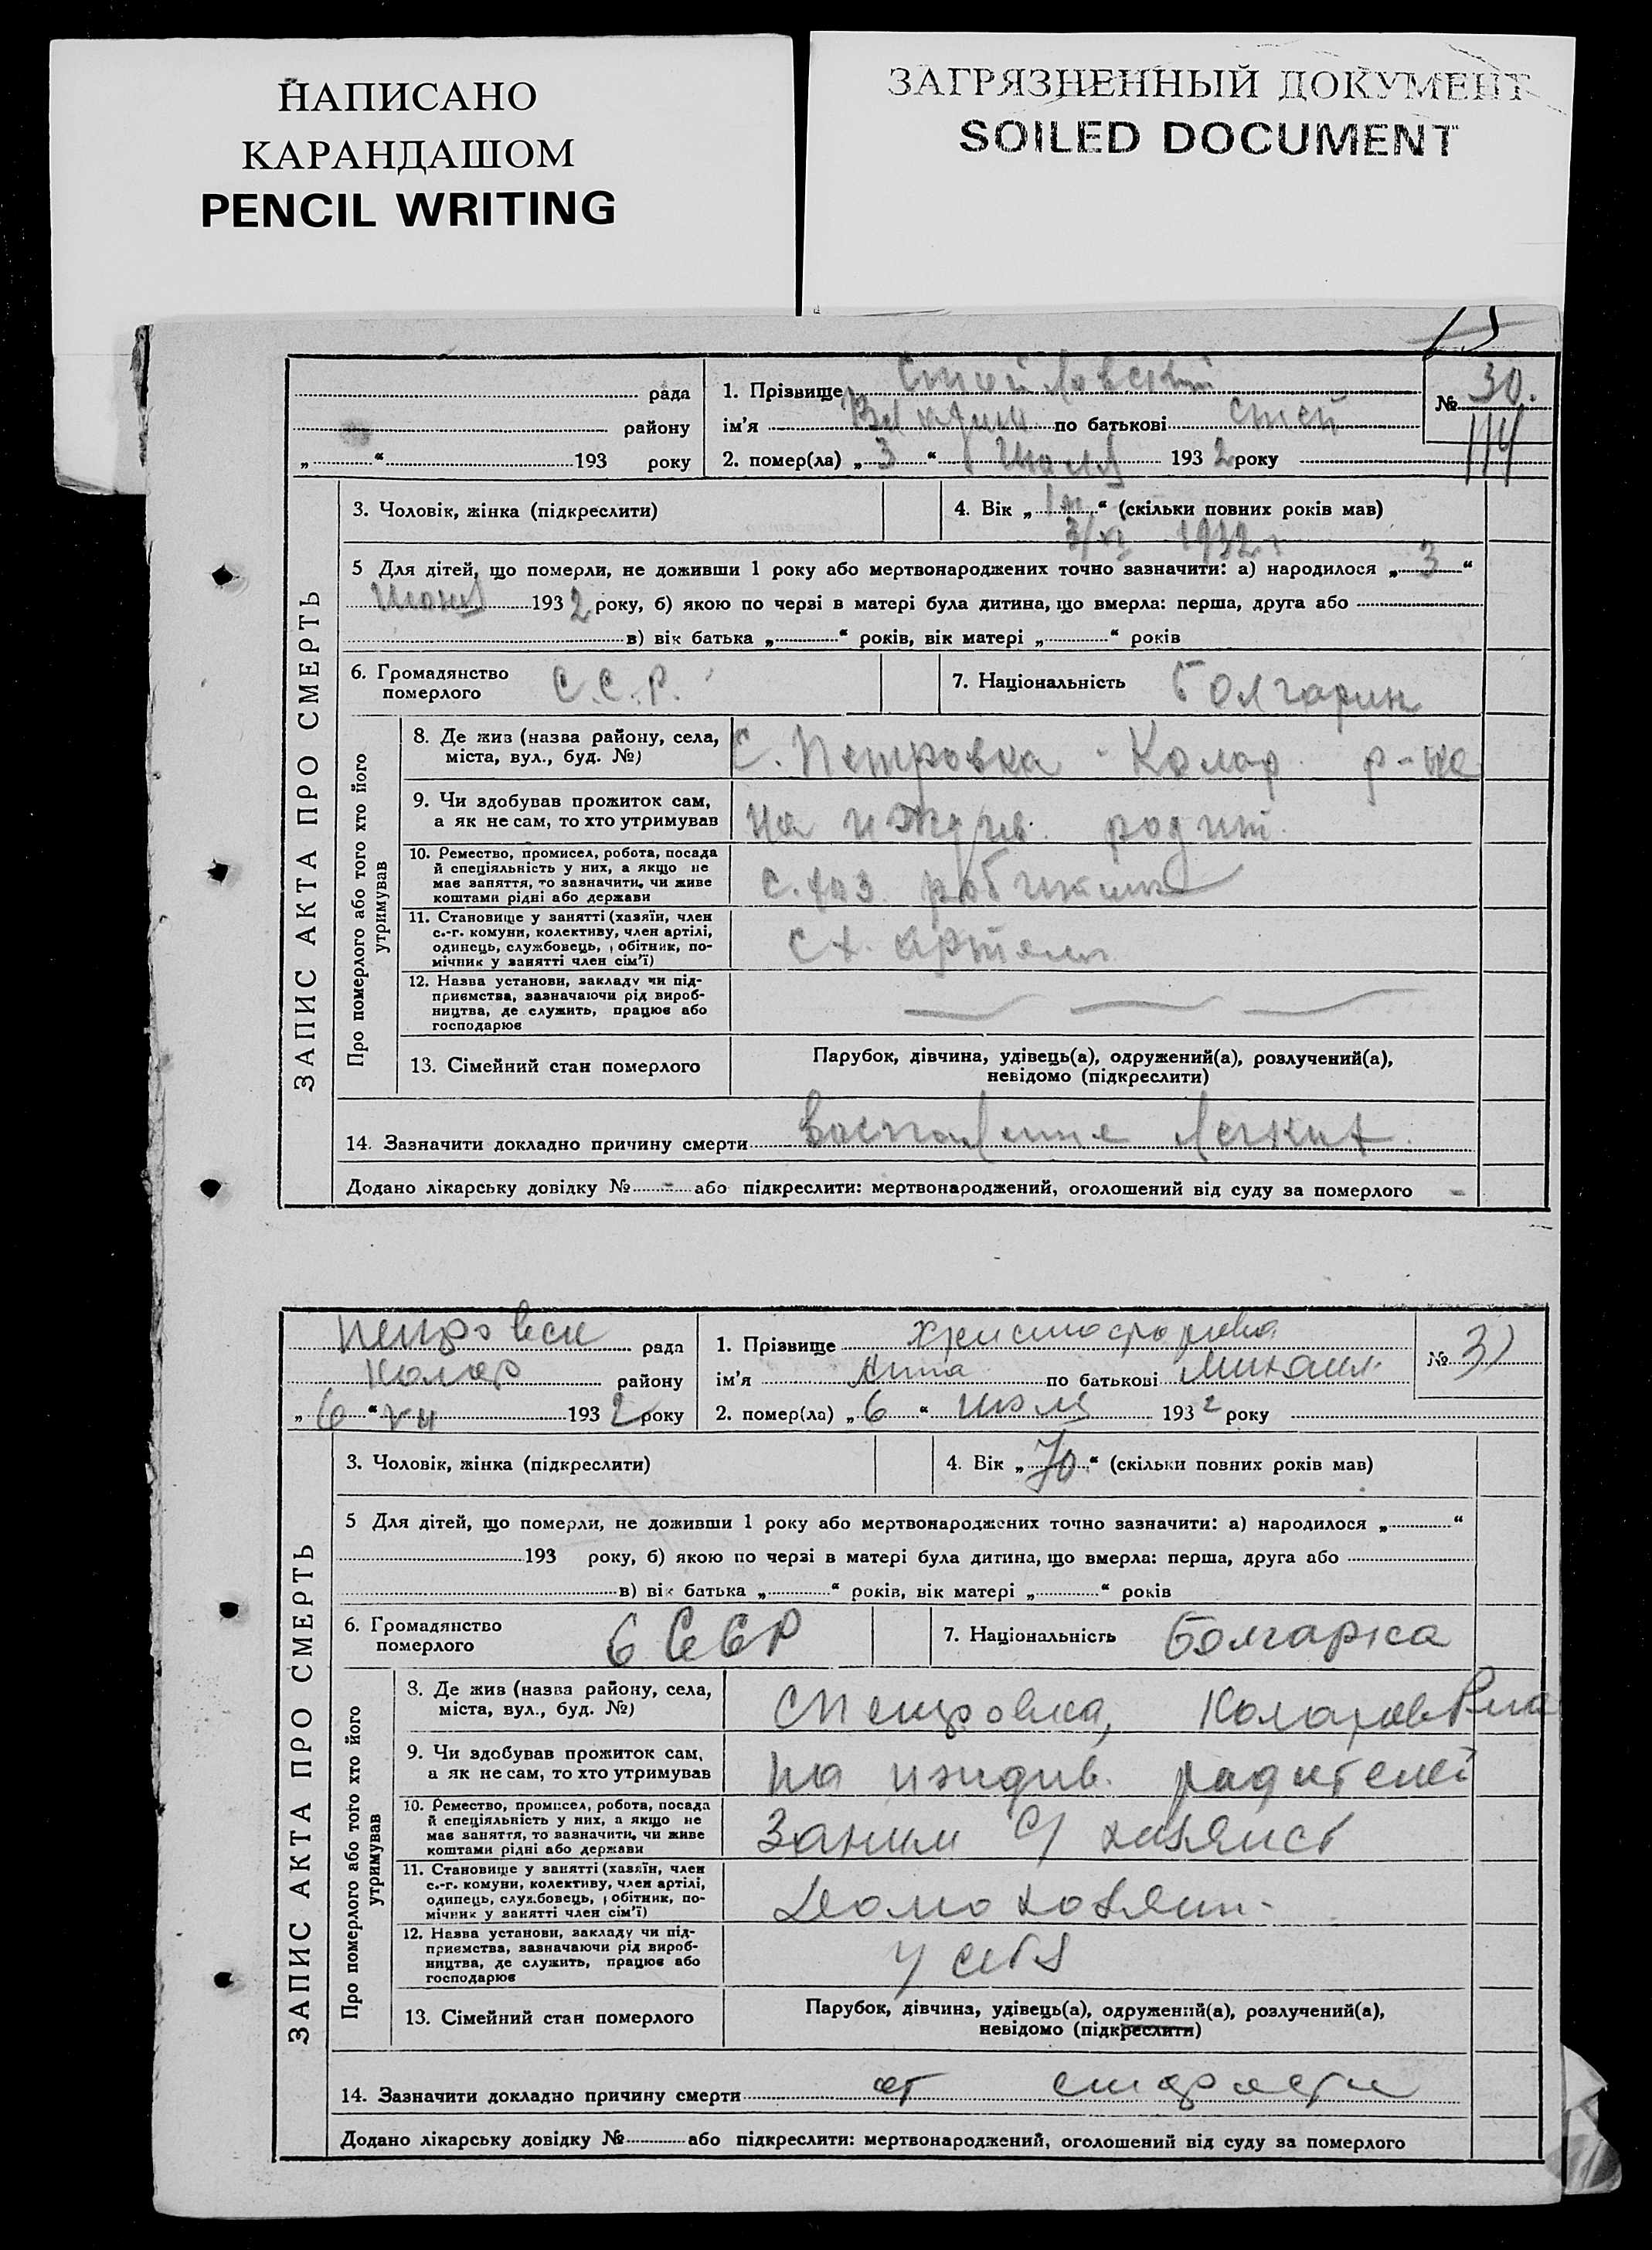 НАПИСАНО
КАРАНДАШОМ
PENCIL WRITING
ЗАГРЯЗНЕННЫЙ ДОКУМЕНТ
SOILED DOCUMENT
15
рада
району
„ “ 193 року
1. Прізвище
ім'я по батькові Стеф
2. помер(ла) „3“ Июля 1932 року
№ 30.
3. Чоловік, жінка (підкреслити)
4. Вік „1 м“ (скільки повних років мав)
1932 г
5 Для дітей, що померли, не доживши 1 року або мертвонароджених точно зазначити: а) народилося „3“
Июня 1932 року, б) якою по черзі в матері була дитина, що вмерла: перша, друга або
в) вік батька „ “ років, вік матері „ “ років
6. Громадянство
померлого
С.С.Р.
7. Національність Болгарин
ЗАПИС АКТА ПРО СМЕРТЬ
Про померлого або того хто його
утримував
8. Де жив (назва району, села,
міста, вул., буд. №)
С. Петровка Колар р-на
9. Чи здобував прожиток сам,
а як не сам, то хто утримував
на иждив. родит.
10. Ремество, промисел, робота, посада
й спеціяльність у них, а якщо не
має заняття, то зазначити, чи живе
коштами рідні або держави
с. хоз.
11. Становище у занятті (хазяїн, член
с.-г. комуни, колективу, член артілі,
одинець, службовець, робітник, по-
мічник у занятті член сім'ї)
сх. артели
12. Назва установи, закладу чи під-
приємства, зазначаючи рід вироб-
ництва, де служить, працює або
господарює
13. Сімейний стан померлого
Парубок, дівчина, удівець(а), одружений(а), розлучений(а),
невідомо (підкреслити)
14. Зазначити докладно причину смерти Воспаление легких
Додано лікарську довідку № - або підкреслити: мертвонароджений, оголошений від суду за померлого
Петровск рада
Колар району
„6“ VII 1932 року
1. Прізвище Христофорова
ім'я Анна по батькові Михаил
2. помер(ла) „6“ июля 1932 року
№ 31
3. Чоловік, жінка (підкреслити)
4. Вік „70“ (скільки повних років мав)
5 Для дітей, що померли, не доживши 1 року або мертвонароджених точно зазначити: а) народилося „ “
193 року, б) якою по черзі в матері була дитина, що вмерла: перша, друга або
в) вік батька „ “ років, вік матері „ “ років
6. Громадянство
померлого
СССР
7. Національність Болгарка
ЗАПИС АКТА ПРО СМЕРТЬ
Про померлого або того хто його
утримував
8. Де жив (назва району, села,
міста, вул., буд. №)
с Петровка, Коларов Р-на
9. Чи здобував прожиток сам,
а як не сам, то хто утримував
на иждив. родителей
10. Ремество, промисел, робота, посада
й спеціяльність у них, а якщо не
має заняття, то зазначити, чи живе
коштами рідні або держави
Заним с/ хозяйст
11. Становище у занятті (хазяїн, член
с.-г. комуни, колективу, член артілі,
одинець, службовець, робітник, по-
мічник у занятті член сім'ї)
Домохозяин
12. Назва установи, закладу чи під-
приємства, зазначаючи рід вироб-
ництва, де служить, працює або
господарює
у себя
13. Сімейний стан померлого
Парубок, дівчина, удівець(а), одружений(а), розлучений(а),
невідомо (підкреслити)
14. Зазначити докладно причину смерти от старости
Додано лікарську довідку № або підкреслити: мертвонароджений, оголошений від суду за померлого